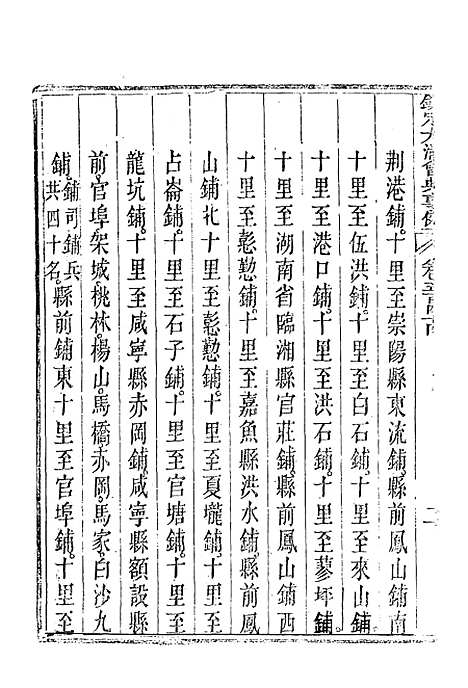 欽定大清會典事例 卷
荆港鋪十里至崇陽縣東流鋪縣前鳳山鋪南
十里至伍洪鋪十里至白石鋪十里至來山鋪
十里至港口鋪十里至洪石鋪十里至蓼坪鋪
十里至湖南省臨湘縣官莊鋪縣前鳳山鋪西
十里至懃鋪十里至嘉魚縣洪水鋪縣前鳳
山鋪北十里至懃鋪十里至夏壠鋪十里至
占崙鋪十里至石子鋪十里至官塘鋪十里至
龍坑鋪十里至咸寧縣赤岡鋪咸寧縣額設縣
前官埠架城桃林楊山馬橋赤岡馬家白沙九
鋪鋪司鋪兵共四十名縣前鋪東十里至官埠鋪十里至